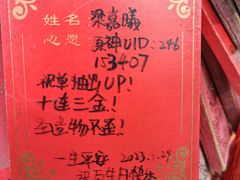 姓名 梁嘉曦
心愿 原神UID:246
153407
祝单抽出UP!
十连三金!
圣遗物不歪!
一生平安 2023.1.29
祝 生日快乐